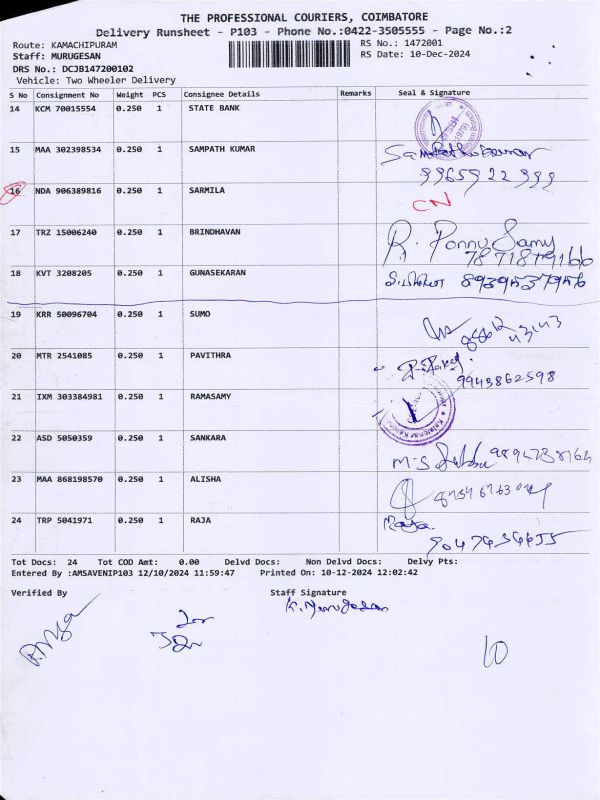 THE PROFESSIONAL COURIERS, COIMBATORE
Delivery Runsheet - P103 - Phone No.:0422-3505555 - Page No.:2
Route: KAMACHIPURAM RS No.: 1472001
Staff: MURUGESAN RS Date: 10-Dec-2024
DRS No.: DCJB147200102
Vehicle: Two Wheeler Delivery
S No Consignment No Weight PCS Consignee Details Remarks Seal & Signature
14 KCM 70015554 0.250 1 STATE BANK
15 MAA 302398534 0.250 1 SAMPATH KUMAR
9965922999
16 NDA 906389816 0.250 1 SARMILA CN
17 TRZ 15006240 0.250 1 BRINDHAVAN R. Ponnu Samy
18 KVT 3208205 0.250 1 GUNASEKARAN 8939537956
19 KRR 50096704 0.250 1 SUMO
20 MTR 2541085 0.250 1 PAVITHRA
9943862598
21 IXM 303384981 0.250 1 RAMASAMY
22 ASD 5050359 0.250 1 SANKARA
23 MAA 868198570 0.250 1 ALISHA
24 TRP 5041971 0.250 1 RAJA Raja
Tot Docs: 24 Tot COD Amt: 0.00 Delvd Docs: Non Delvd Docs: Delvy Pts:
Entered By :AMSAVENIP103 12/10/2024 11:59:47 Printed On: 10-12-2024 12:02:42
Verified By Staff Signature
K. Murugesan
10